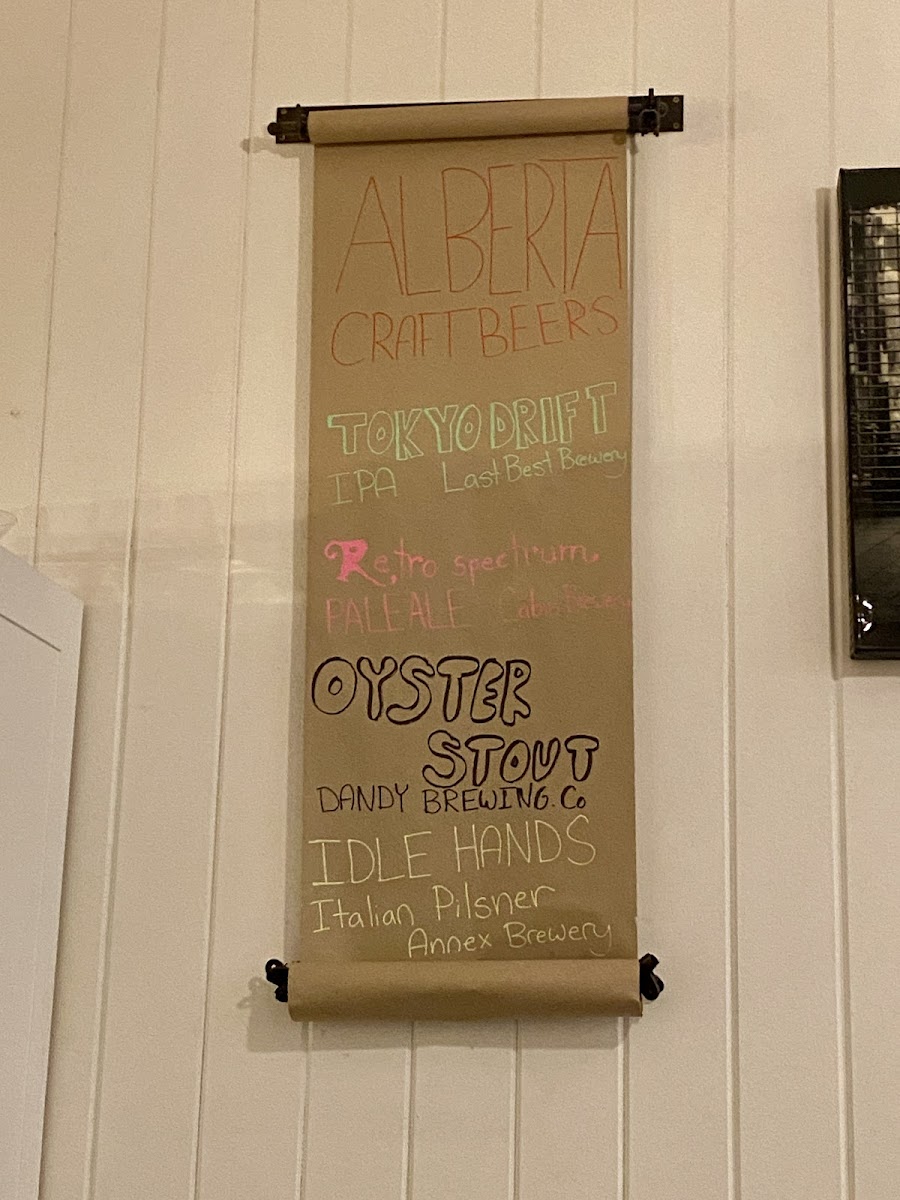 ALBERTA
CRAFT BEERS
TOKYO DRIFT
IPA Last Best Brewery
Retro spectrum
PALE ALE Cabin Brewery
OYSTER
STOUT
DANDY BREWING.Co
IDLE HANDS
Italian Pilsner
Annex Brewery